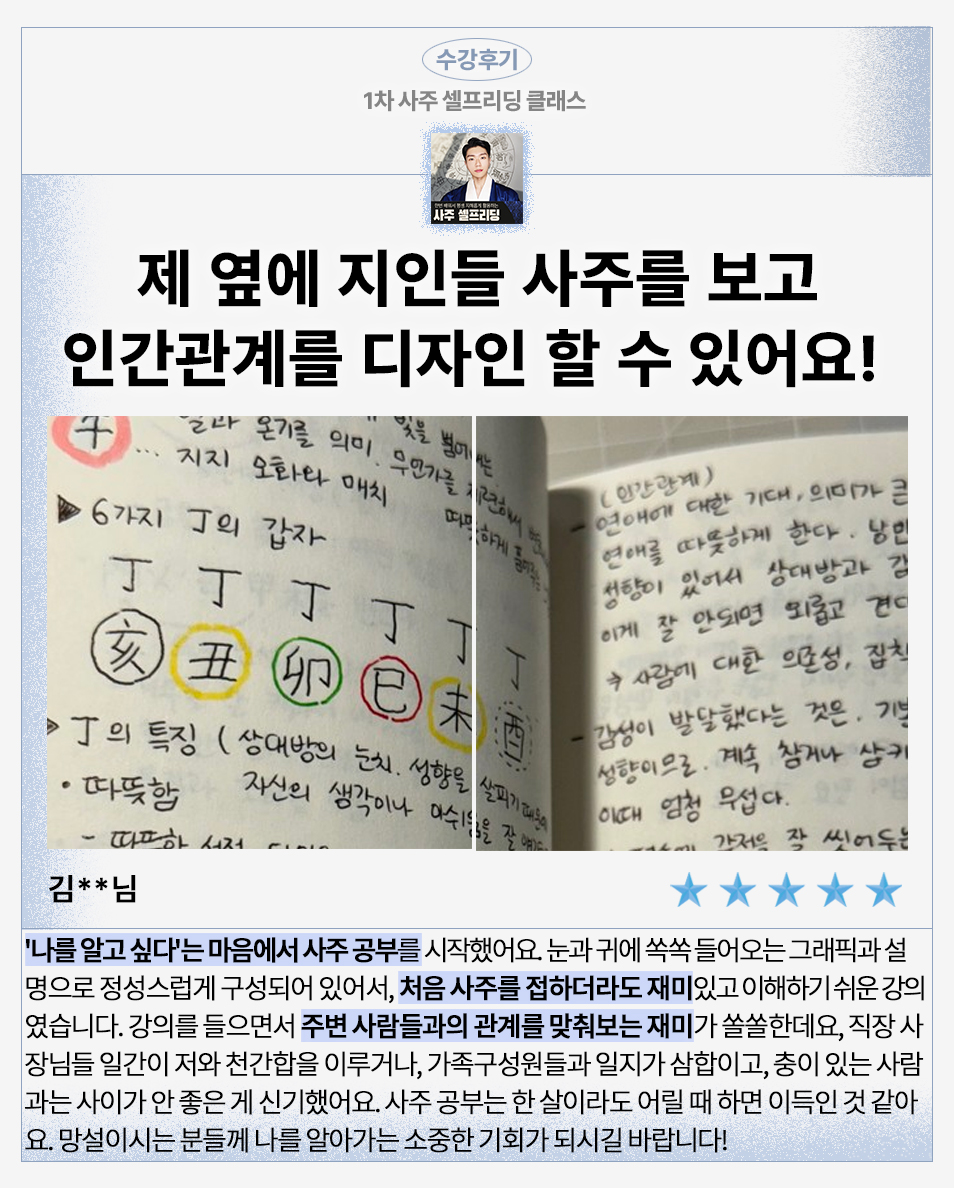 수강후기
1차 사주 셀프리딩 클래스
사주 셀프리딩
제 옆에 지인들 사주를 보고
인간관계를 디자인 할 수 있어요!
午
온기를 의미.
... 지지 오화와 매치
▶ 6가지 丁의 갑자
丁 丁 丁 丁 丁 丁
亥 丑 卯 巳 未 酉
丁의 특징 ( 상대방의 눈치. 성향을 살피기 때문에
자신의 생각이나 아쉬움을 잘
• 따뜻함
(인간관계)
- 연애에 대한 기대, 의미가 큰
연애를 따뜻하게 한다. 낭만
성향이 있어서 상대방과 감
이게 잘 안되면 외롭고 견디
→ 사람에 대한 의존성, 집착
- 감성이 발달했다는 것은. 기분
성향이므로. 계속 참거나 삼키
이때 엄청 무섭다.
감정을 잘 씻어두는
김**님
'나를 알고 싶다'는 마음에서 사주 공부를 시작했어요. 눈과 귀에 쏙쏙 들어오는 그래픽과 설
명으로 정성스럽게 구성되어 있어서, 처음 사주를 접하더라도 재미있고 이해하기 쉬운 강의
였습니다. 강의를 들으면서 주변 사람들과의 관계를 맞춰보는 재미가 쏠쏠한데요, 직장 사
장님들 일간이 저와 천간합을 이루거나, 가족구성원들과 일지가 삼합이고, 충이 있는 사람
과는 사이가 안 좋은 게 신기했어요. 사주 공부는 한 살이라도 어릴 때 하면 이득인 것 같아
요. 망설이시는 분들께 나를 알아가는 소중한 기회가 되시길 바랍니다!